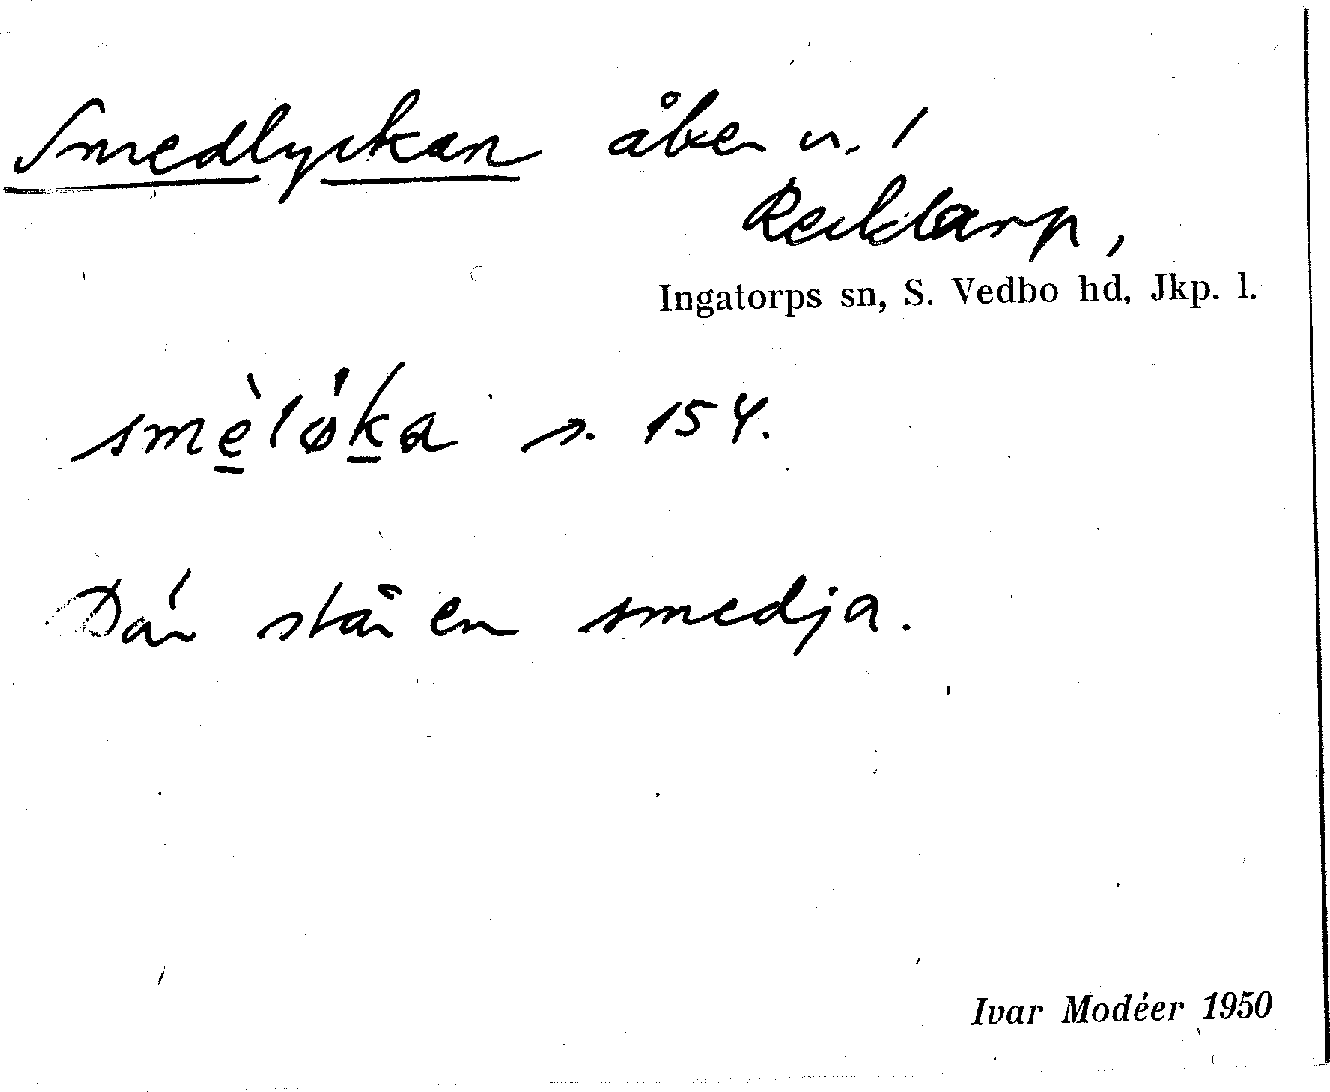 Smedlyckan åker n. 1
Recktarp,
Ingatorps sn, S. Vedbo hd, Jkp. l.
smè̱lǿḵa s. 154.
Där står en smedja.
Ivar Modéer 1950